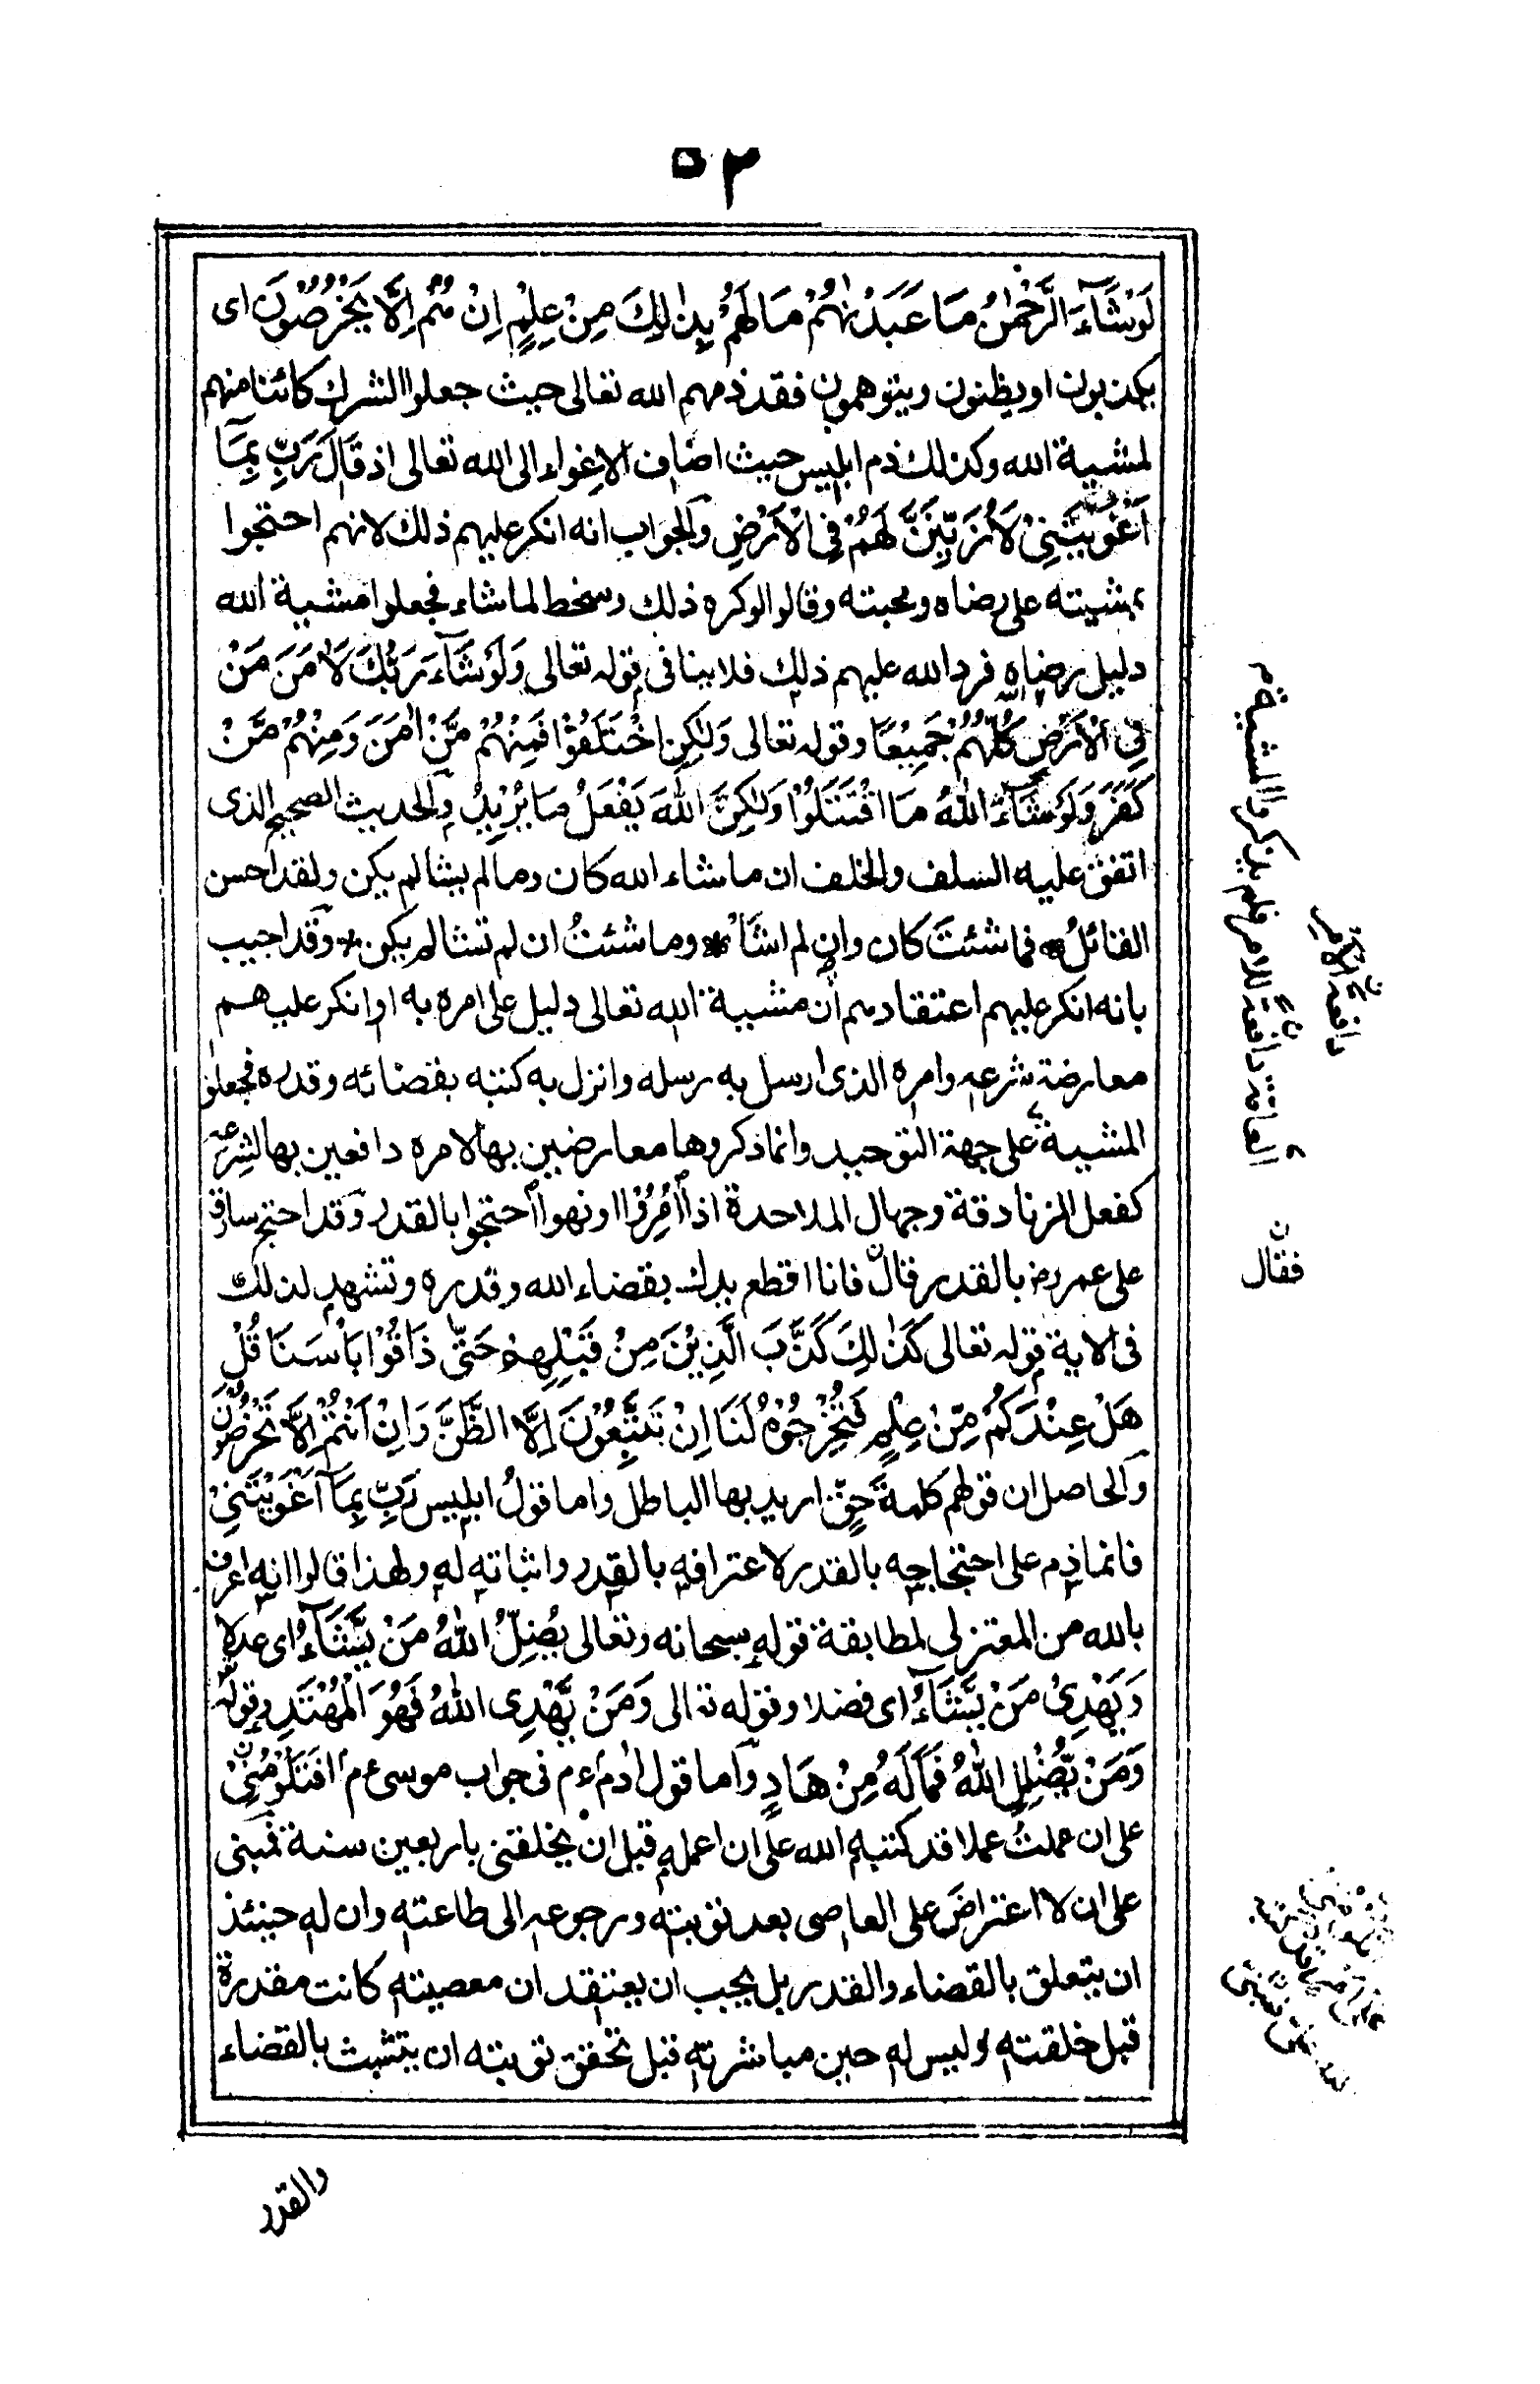 ٥٢
لَوْشَآءَ الرَّحْمٰنُ مَا عَبَدْنٰهُمْ مَا لَهُمْ بِذٰلِكَ مِنْ عِلْمٍ اِنْ هُمْ اِلَّا يَخْرُصُوْنَ اى
يكذبون او يظنون ويتوهمون فقد ذمهم الله تعالى حيث جعلوا الشرك كائنا منهم
لمشية الله وكذلك ذم ابليس حيث اضاف الاغواء الى الله تعالى اذ قَالَ رَبِّ بِمَآ
اَغْوَيْتَنِيْ لَاُزَيِّنَنَّ لَهُمْ فِي الْاَرْضِ والجواب انه انكر عليهم ذلك لانهم احتجوا
بمشيته على رضاه ومحبته وقالوا لوكره ذلك وسخط لما شاء فجعلوا مشية الله
دليل رضاه فرد الله عليهم ذلك فلا ينافى قوله تعالى وَلَوْشَآءَ رَبُّكَ لَاٰمَنَ مَنْ
فِي الْاَرْضِ كُلُّهُمْ جَمِيْعًا وقوله تعالى وَلٰكِنِ اخْتَلَفُوْا فَمِنْهُمْ مَّنْ اٰمَنَ وَمِنْهُمْ مَّنْ
كَفَرَ وَلَوْشَآءَ اللّٰهُ مَا اقْتَتَلُوْا وَلٰكِنَّ اللّٰهَ يَفْعَلُ مَا يُرِيْدُ والحديث الصحيح الذى
اتفق عليه السلف والخلف ان ماشاء الله كان ومالم يشا لم يكن ولقد احسن
القائلُ فما شئتَ كان وان لم اشَأْ * وما شئتُ ان لم تشا لم يكن * وقد اجيب
بانه انكر عليهم اعتقادهم ان مشية الله تعالى دليل على امره به او انكر عليهم
معارضة شرعه وامره الذى ارسل به رسله وانزل به كتبه بقضائه وقدره فجعلوا
المشية على جهة التوحيد وانما ذكروها معارضين بها لامره دافعين بها لشرعه
كفعل الزنادقة وجهال الملاحدة اذا اُمِرُوْا او نهوا احتجوا بالقدر وقد احتج سارق
على عمر رض بالقدر قال فانا اقطع يدك بقضاء الله وقدره وتشهد لذلك
فى الاية قوله تعالى كَذٰلِكَ كَذَّبَ الَّذِيْنَ مِنْ قَبْلِهِمْ حَتّٰى ذَاقُوْا بَاْسَنَا قُلْ
هَلْ عِنْدَكُمْ مِّنْ عِلْمٍ فَتُخْرِجُوْهُ لَنَا اِنْ تَتَّبِعُوْنَ اِلَّا الظَّنَّ وَاِنْ اَنْتُمْ اِلَّا تَخْرُصُوْنَ
والحاصل ان قولهم كلمةُ حَقٍّ اريد بها الباطل واما قولُ ابليس رَبِّ بِمَآ اَغْوَيْتَنِيْ
فانما ذم على احتجاجه بالقدر لا عترافه بالقدر واثباته له ولهذا قالوا انه اعرف
بالله من المعتزلى لمطابقة قوله سبحانه وتعالى يُضِلُّ اللّٰهُ مَنْ يَّشَآءُ اى عدلا
وَيَهْدِيْ مَنْ يَّشَآءُ اى فضلا وقوله تعالى وَمَنْ يَّهْدِى اللّٰهُ فَهُوَ الْمُهْتَدِ وقوله
وَمَنْ يُّضْلِلِ اللّٰهُ فَمَا لَهُ مِنْ هَادٍ واما قول اٰدم ءم فى جواب موسى ءم افَتَلُوْمُنِيْ
على ان عملتُ عملا قد كتبه الله على ان اعمله قبل ان يخلقنى باربعين سنة فمبنى
على ان لا اعتراضَ على العاصى بعد توبته ورجوعه الى طاعته وان له حينئذ
ان يتعلق بالقضاء والقدر بل يجب ان يعتقد ان معصيته كانت مقدرة
قبل خلقته وليس له حين مباشرته قبل تحقق توبته ان يتشبث بالقضاء
والقدر
العامة دافعة للامر فلم يذكروا المشية م
دافعة الامر
ن
فقال